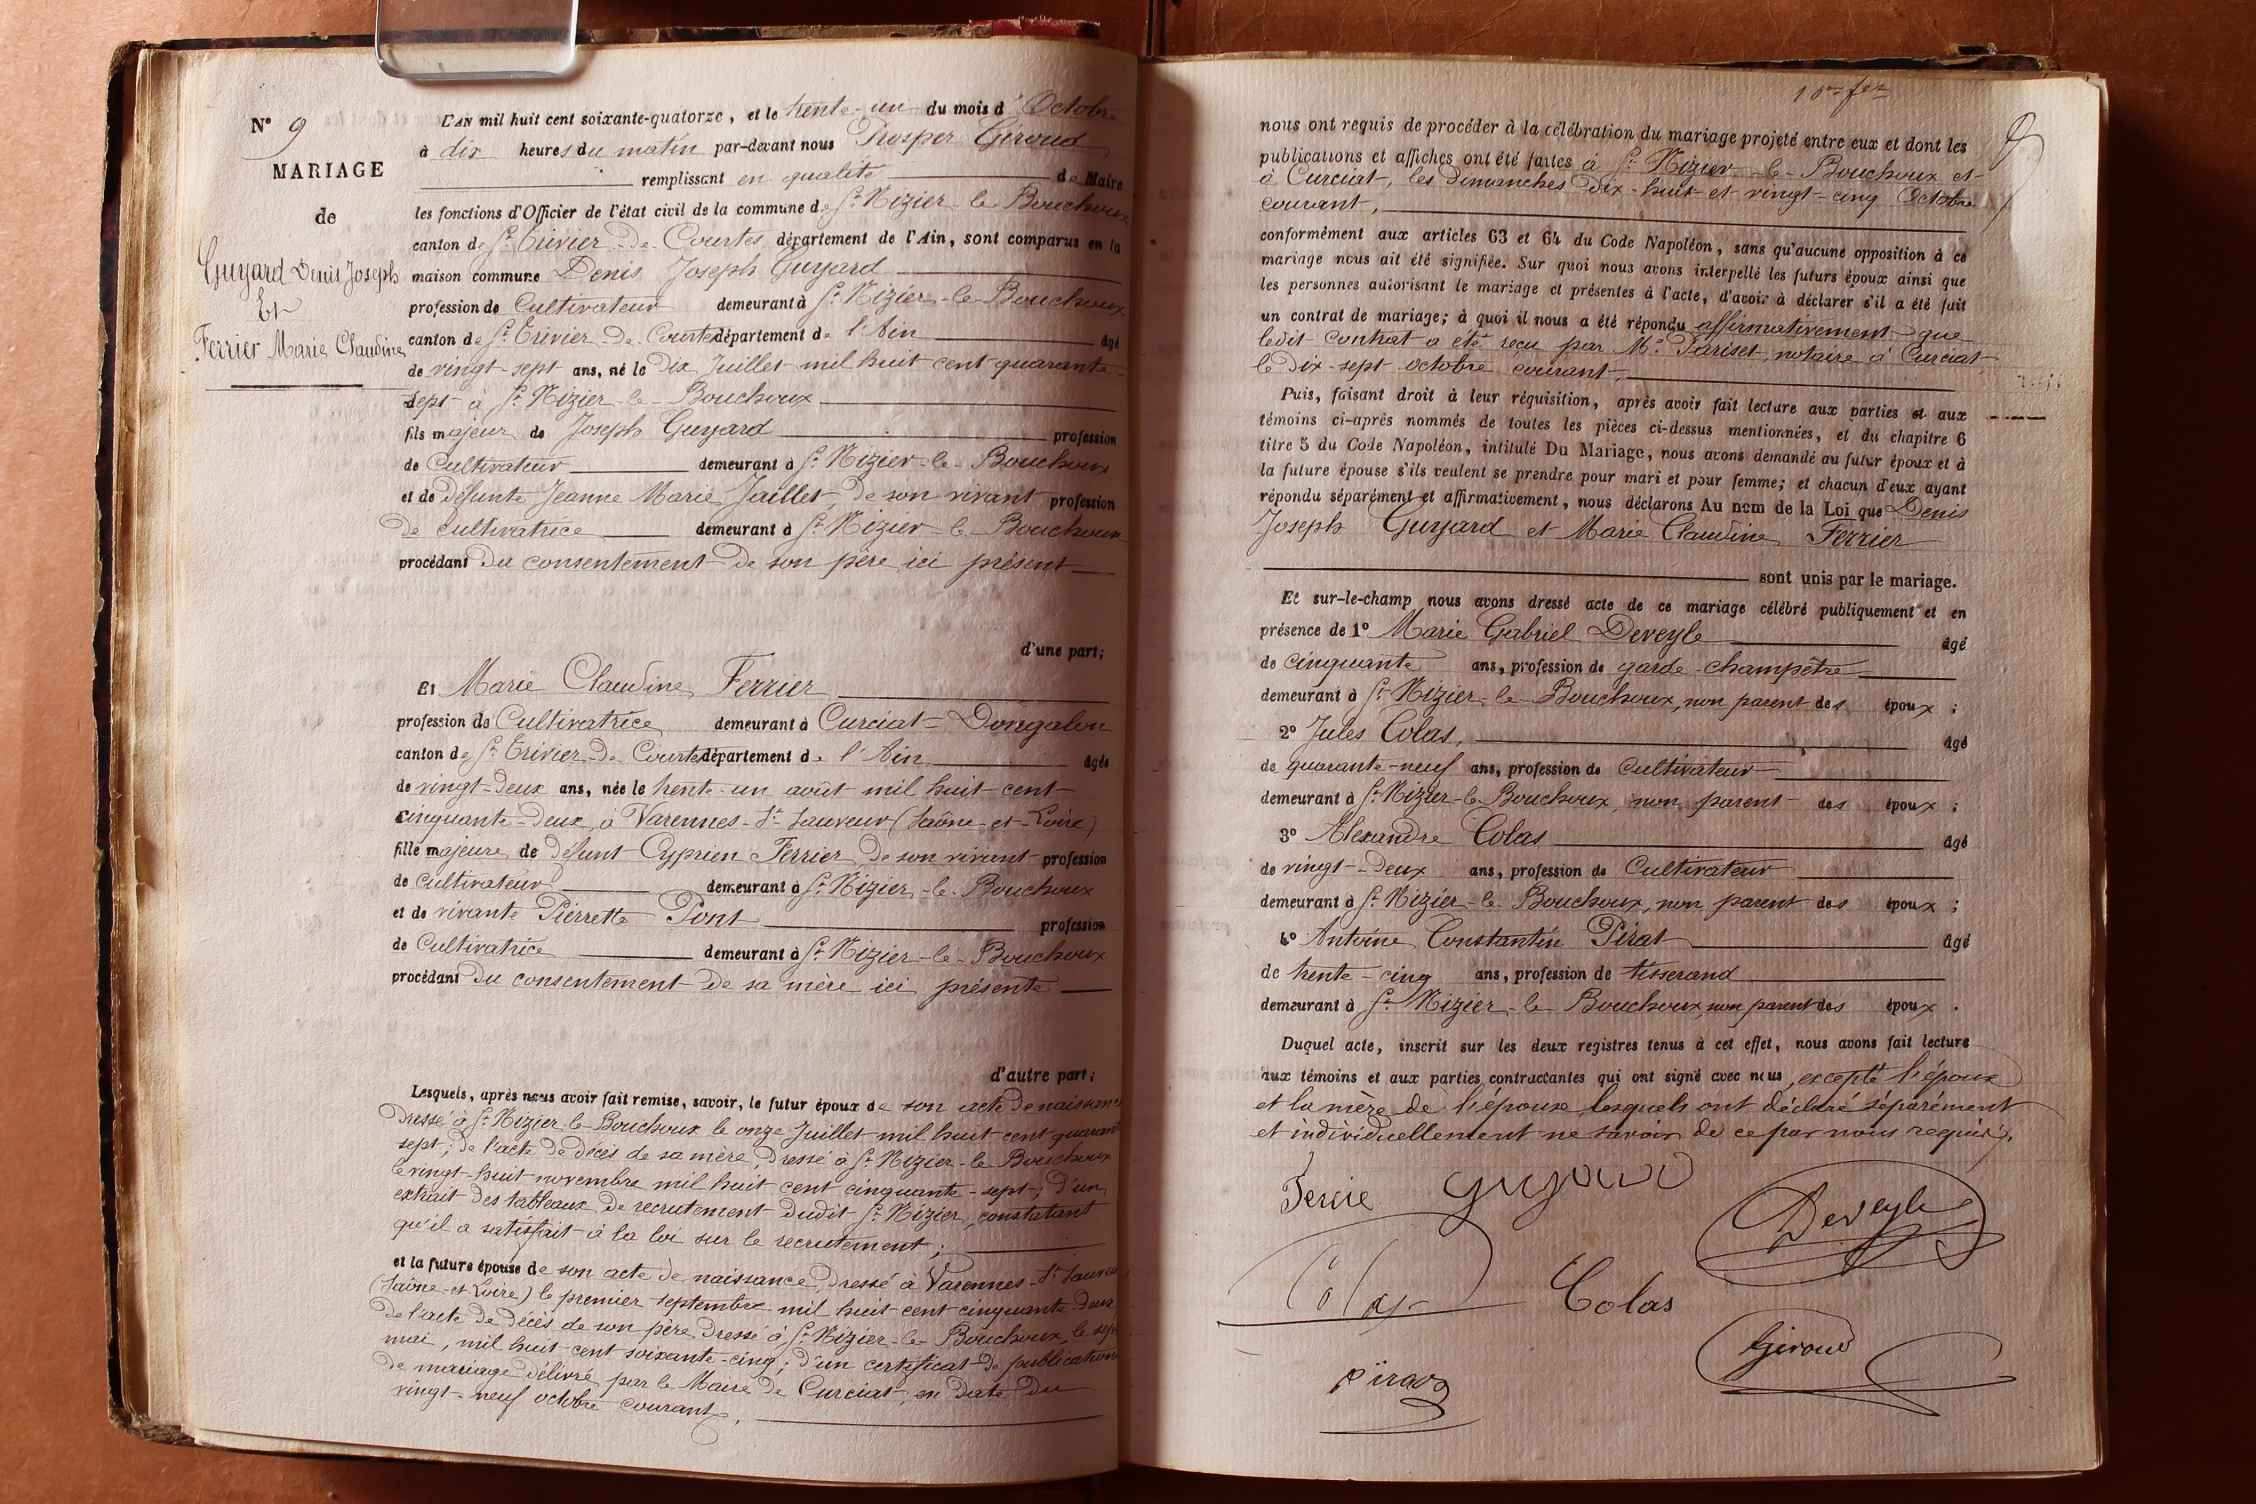 N° 9
MARIAGE
de
Guyard Denis Joseph
Et
Ferrier Marie Claudine
L'AN mil huit cent soixante-quatorze, et le trente-un du mois d'Octobre
à dix heures du matin par-devant nous Prosper Giroud
remplissant en qualité de Maire
les fonctions d'Officier de l'état civil de la commune de St Nizier-le-Bouchoux
canton de St Trivier-de-Courtes département de l'Ain, sont comparus en la
maison commune Denis Joseph Guyard
profession de Cultivateur demeurant à St Nizier-le-Bouchoux
canton de St Trivier-de-Courtes département de l'Ain âgé
de vingt-sept ans, né le Dix Juillet mil huit cent quarante-
sept à St Nizier-le-Bouchoux
fils majeur de Joseph Guyard profession
de Cultivateur demeurant à St Nizier-le-Bouchoux
et de défunte Jeanne Marie Jaillet, de son vivant profession
de cultivatrice demeurant à St Nizier-le-Bouchoux
procédant du consentement de son père ici présent
d'une part;
Et Marie Claudine Ferrier
profession de Cultivatrice demeurant à Curciat-Dongalon
canton de St Trivier-de-Courtes département de l'Ain âgée
de vingt-deux ans, née le trente-un août mil huit cent
cinquante-deux, à Varennes-St-Sauveur (Saône-et-Loire)
fille majeure de défunt Cyprien Ferrier, de son vivant profession
de cultivateur demeurant à St Nizier-le-Bouchoux
et de vivante Pierrette Pont profession
de Cultivatrice demeurant à St Nizier-le-Bouchoux
procédant du consentement de sa mère ici présente
d'autre part;
Lesquels, après nous avoir fait remise, savoir, le futur époux de son acte de naissance
dressé à St Nizier-le-Bouchoux le onze Juillet mil huit cent quarante
sept; de l'acte de décès de sa mère, dressé à St Nizier-le-Bouchoux
le vingt-huit novembre mil huit cent cinquante-sept; d'un
extrait des tableaux de recrutement dudit St Nizier, constatant
qu'il a satisfait à la loi sur le recrutement;
et la future épouse de son acte de naissance, dressé à Varennes-St-Sauveur
(Saône-et-Loire) le premier septembre mil huit cent cinquante-deux
de l'acte de décès de son père, dressé à St Nizier-le-Bouchoux, le sept
mai, mil huit cent soixante-cinq; d'un certificat de publication
de mariage délivré par le Maire de Curciat, en date du
vingt-neuf octobre courant,
nous ont requis de procéder à la célébration du mariage projeté entre eux et dont les
publications et affiches ont été faites à St Nizier-le-Bouchoux et
à Curciat, les Dimanches dix-huit et vingt-cinq Octobre
courant,
conformément aux articles 63 et 64 du Code Napoléon, sans qu'aucune opposition à ce
mariage nous ait été signifiée. Sur quoi nous avons interpellé les futurs époux ainsi que
les personnes autorisant le mariage et présentes à l'acte, d'avoir à déclarer s'il a été fait
un contrat de mariage; à quoi il nous a été répondu affirmativement que
ledit contrat a été reçu par Me Pariset, notaire à Curciat
le Dix-sept octobre courant,
Puis, faisant droit à leur réquisition, après avoir fait lecture aux parties et aux
témoins ci-après nommés de toutes les pièces ci-dessus mentionnées, et du chapitre 6
titre 5 du Code Napoléon, intitulé Du Mariage, nous avons demandé au futur époux et à
la future épouse s'ils veulent se prendre pour mari et pour femme; et chacun d'eux ayant
répondu séparément et affirmativement, nous déclarons Au nom de la Loi que Denis
Joseph Guyard et Marie Claudine Ferrier
sont unis par le mariage.
Et sur-le-champ nous avons dressé acte de ce mariage célébré publiquement et en
présence de 1° Marie Gabriel Deveyle âgé
de cinquante ans, profession de garde-champêtre
demeurant à St Nizier-le-Bouchoux, non parent des époux;
2° Jules Colas, âgé
de quarante-neuf ans, profession de Cultivateur
demeurant à St Nizier-le-Bouchoux, non parent des époux;
3° Alexandre Colas âgé
de vingt-deux ans, profession de Cultivateur
demeurant à St Nizier-le-Bouchoux, non parent des époux;
4° Antoine Constantin Pirat âgé
de trente-cinq ans, profession de tisserand
demeurant à St Nizier-le-Bouchoux, non parent des époux.
Duquel acte, inscrit sur les deux registres tenus à cet effet, nous avons fait lecture
aux témoins et aux parties contractantes qui ont signé avec nous, excepté l'époux
et la mère de l'épouse lesquels ont déclaré séparément
et individuellement ne savoir de ce par nous requis.
Guyard
Deveyle
Colas
Colas
Giroud